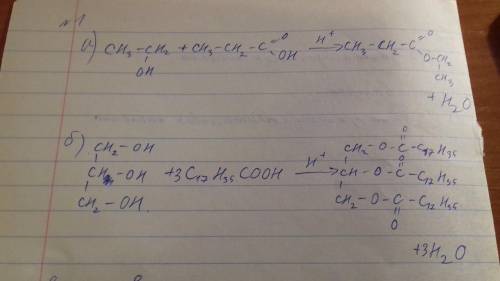 №1
а) CH₃-CH₂ + CH₃-CH₂-C=O OH H⁺→ CH₃-CH₂-C=O O-CH₂ CH₃
OH
+ H₂O
б) CH₂-OH CH₂-O-C-C₁₇H₃₅ O
CH-OH + 3C₁₇H₃₅COOH H⁺→ CH-O-C-C₁₇H₃₅ O
CH₂-OH. CH₂-O-C-C₁₇H₃₅ O
+3H₂O